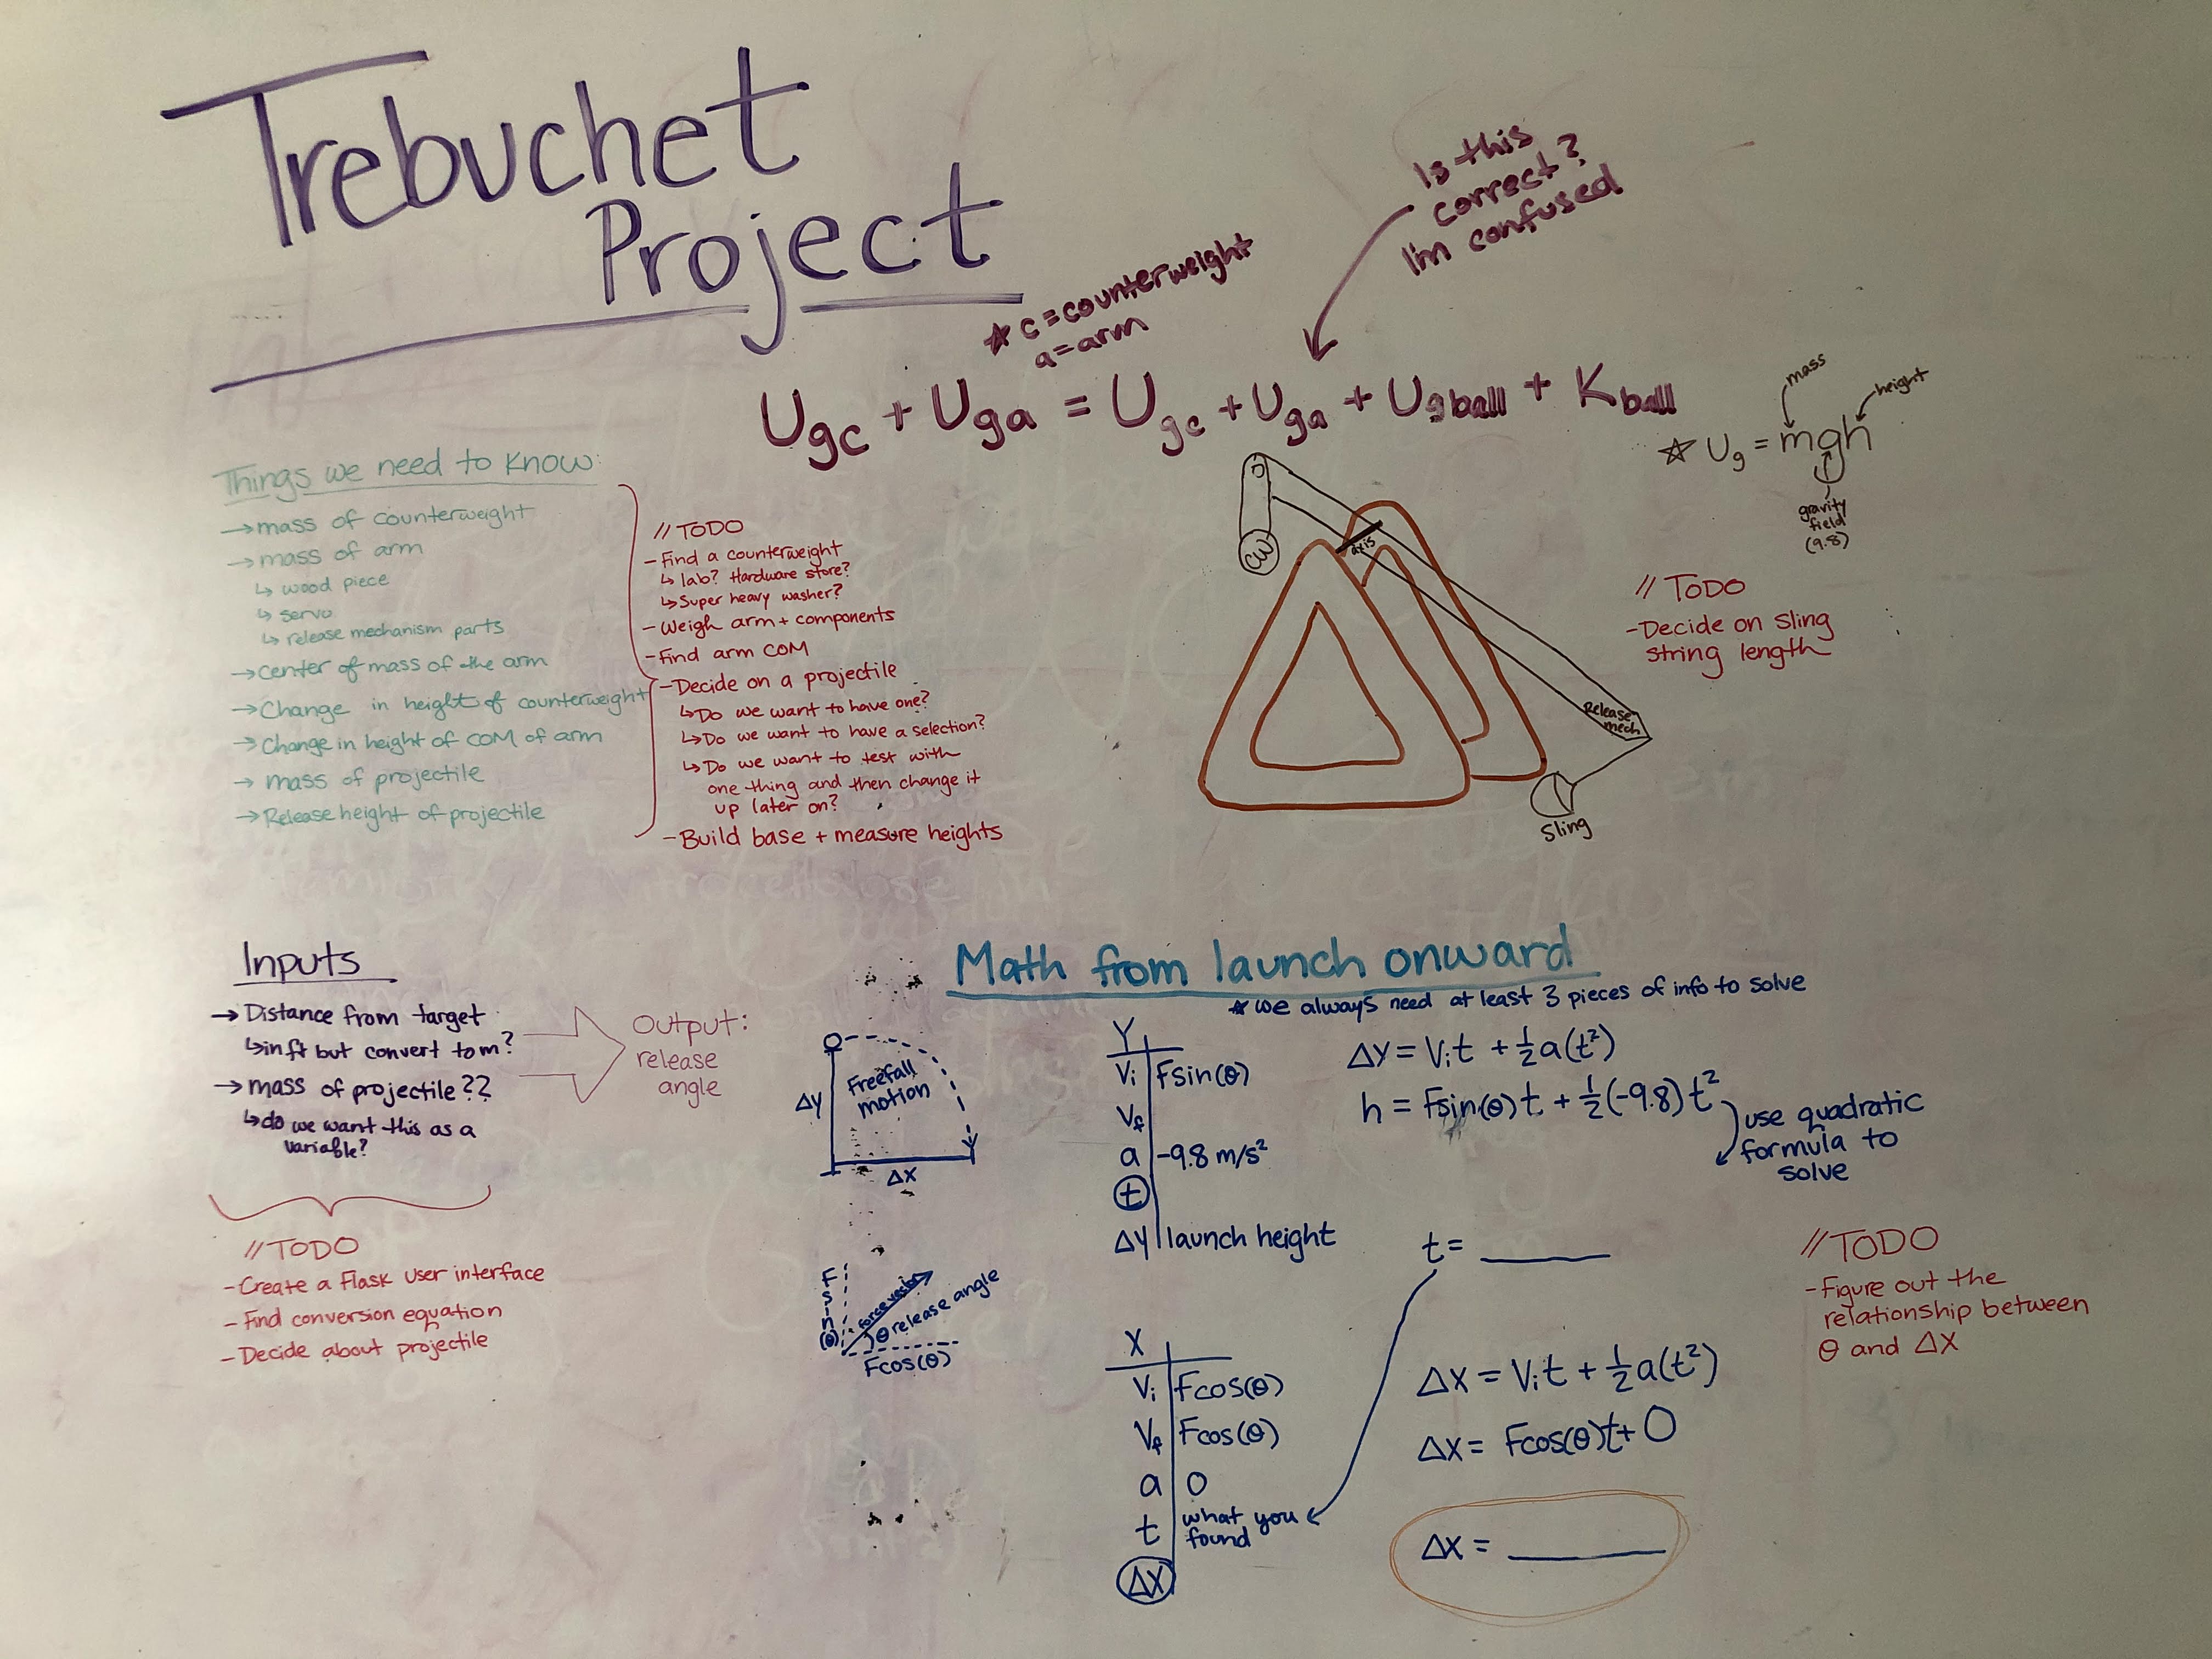 Trebuchet
Project
Is this
correct?
I'm confused
☆ c = counterweight
a = arm
Ugc + Uga = Ugc + Uga + Ugball + Kball
mass
height
☆ Ug = mgh
gravity
field
(9.8)
Things we need to know:
→ mass of counterweight
→ mass of arm
↳ wood piece
↳ servo
↳ release mechanism parts
→ center of mass of the arm
→ Change in height of counterweight
→ Change in height of COM of arm
→ mass of projectile
→ Release height of projectile
// TODO
- Find a counterweight
↳ lab? Hardware store?
↳ Super heavy washer?
- Weigh arm + components
- Find arm COM
- Decide on a projectile
↳ Do we want to have one?
↳ Do we want to have a selection?
↳ Do we want to test with
one thing and then change it
up later on?
- Build base + measure heights
CW
axis
Release
mech
Sling
// TODO
- Decide on sling
string length
Inputs
→ Distance from target
↳ in ft but convert to m?
→ mass of projectile??
↳ do we want this as a
variable?
Output:
release
angle
// TODO
- Create a Flask user interface
- Find conversion equation
- Decide about projectile
Math from launch onward
* we always need at least 3 pieces of info to solve
Freefall
motion
ΔY
ΔX
Y
Vi Fsin(θ)
Vf
a -9.8 m/s²
t
ΔY launch height
ΔY = Vit + ½a(t²)
h = Fsin(θ)t + ½(-9.8)t²
use quadratic
formula to
solve
t =
Fsin(θ)
force vector
θ release angle
Fcos(θ)
X
Vi Fcos(θ)
Vf Fcos(θ)
a 0
t what you
found
ΔX
ΔX = Vit + ½a(t²)
ΔX = Fcos(θ)t + 0
ΔX =
// TODO
- Figure out the
relationship between
θ and ΔX